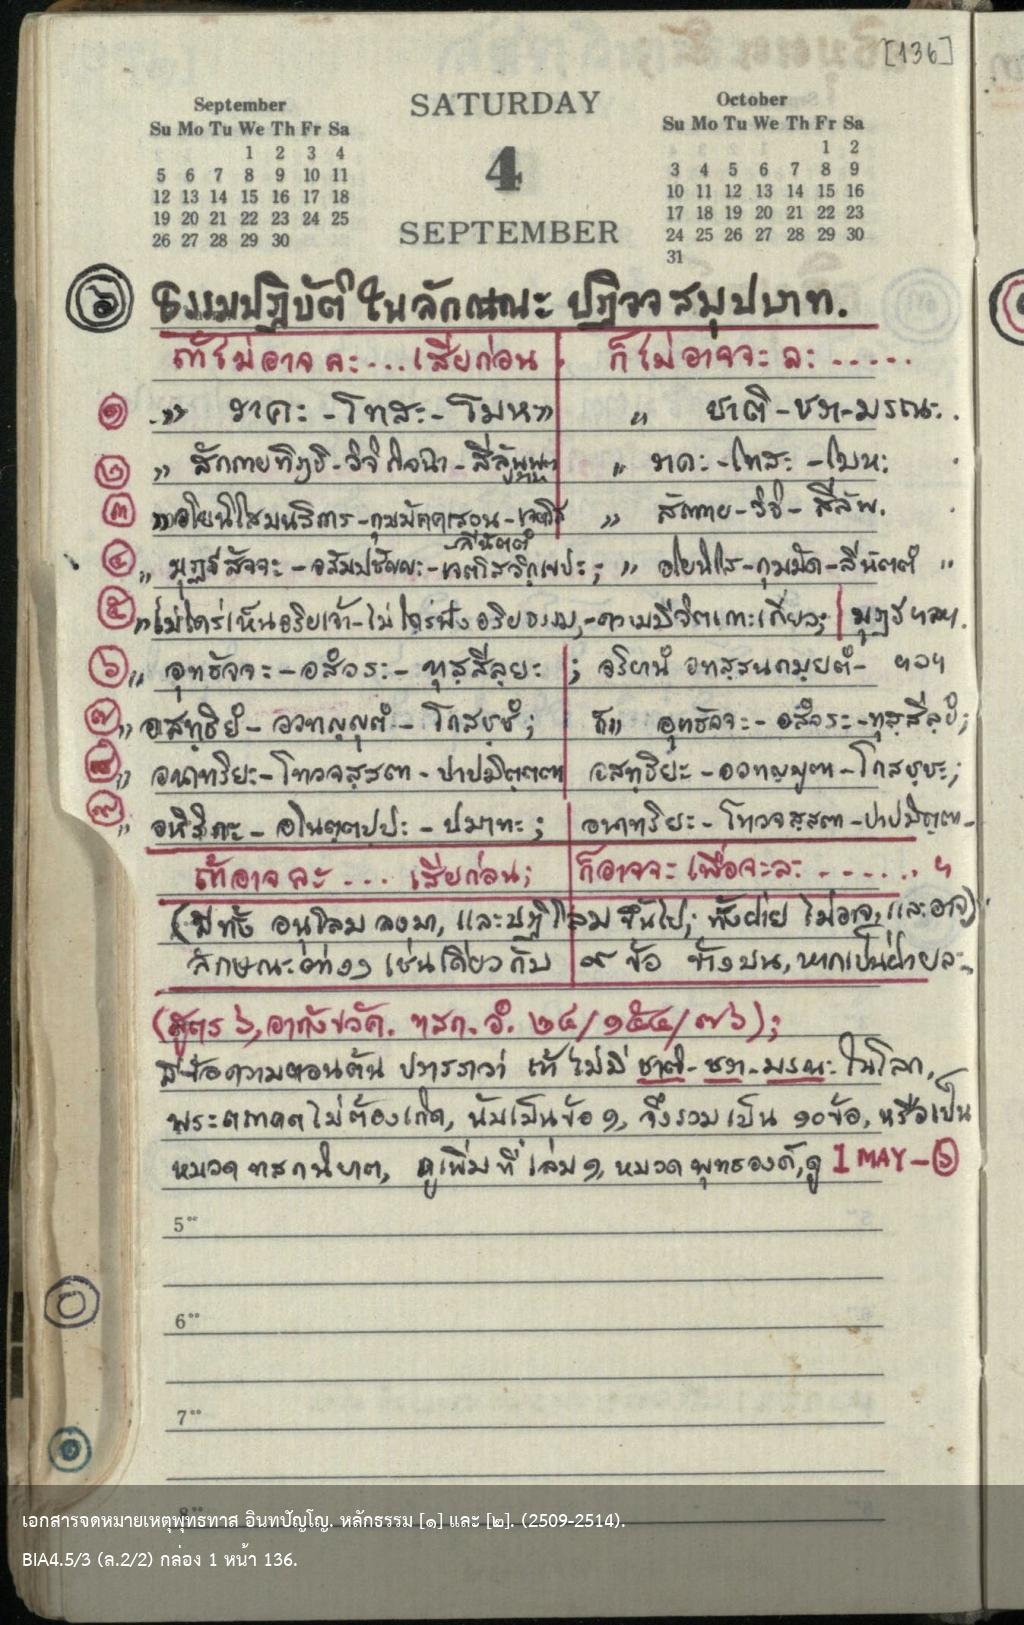 [136]
September
Su Mo Tu We Th Fr Sa
1 2 3 4
5 6 7 8 9 10 11
12 13 14 15 16 17 18
19 20 21 22 23 24 25
26 27 28 29 30
SATURDAY
4
SEPTEMBER
October
Su Mo Tu We Th Fr Sa
1 2
3 4 5 6 7 8 9
10 11 12 13 14 15 16
17 18 19 20 21 22 23
24 25 26 27 28 29 30
31
๖ ธรรมปฏิบัติในลักษณะ ปฏิจจสมุปบาท.
ถ้าไม่อาจ ละ ... เสียก่อน ก็ไม่อาจจะ ละ .....
๑ " ราคะ - โทสะ - โมหะ " " ชาติ - ชรา - มรณะ.
๒ " สักกายทิฏฐิ - วิจิกิจฉา - " ราคะ - โทสะ - โมหะ
๓ " อโยนิโสมนสิการ - กุมมัคคเสวน - ลีนัตตํ " สักกาย - วิจิ - สีลัพ.
๔ " มุฏฐสัจจะ - อสัมปชัญญะ - เจตโสวิกฺเขปะ ; " อโยนิโส - กุมมัค - ลีนัตตํ "
๕ " ไม่ใคร่เห็นอริยเจ้า - ไม่ใคร่ฟังอริยธรรม, - ความมีจิตเกาะเกี่ยว; มุฏฐ ฯลฯ.
๖ " อุทธัจจะ - อสํวระ - ทุสฺสีลฺยะ ; อริยานํ อทสฺสนกมฺยตํ - ฯลฯ
๗ " อสทฺธิยํ - อวทญฺญุตํ - โกสชฺชํ ; ก็ " อุทธัจจะ - อสํวระ - ทุสฺสีลฺยํ;
๘ " อนาทริยะ - โทวจสฺสตา - ปาปมิตฺตตา อสทฺธิยะ - อวทญฺญุตา - โกสชฺชะ;
๙ " อหิริกะ - อโนตฺตปฺปะ - ปมาทะ ; อนาทริยะ - โทวจสฺสตา - ปาปมิตฺตตา -
ถ้าอาจ ละ ... เสียก่อน; ก็อาจจะ เพื่อจะละ ....... ฯ
(มีทั้ง อนุโลม ลงมา, และปฏิโลม ขึ้นไป; ทั้งฝ่าย ไม่อาจ, และอาจ)
ลักษณะต่างๆ เช่นเดียวกับ ๙ ข้อ ข้างบน, หากเป็นฝ่ายละ.
(สูตร ๖, อากังขวัค. ทสก. อํ. ๒๔/๑๕๔/๗๖);
มีข้อความตอนต้น ปรารภว่า ถ้าไม่มี ชาติ - ชรา - มรณะ ในโลก,
พระตถาคตไม่ต้องเกิด, นับเป็นข้อ ๑, จึงรวมเป็น ๑๐ ข้อ, หรือเป็น
หมวด ทสกนิบาต, ดูเพิ่มที่ เล่ม ๑, หมวด พุทธองค์, ดู 1 MAY - ๖
5
6
7
8
เอกสารจดหมายเหตุพุทธทาส อินทปัญโญ. หลักธรรม [๑] และ [๒]. (2509-2514).
BIA4.5/3 (ล.2/2) กล่อง 1 หน้า 136.